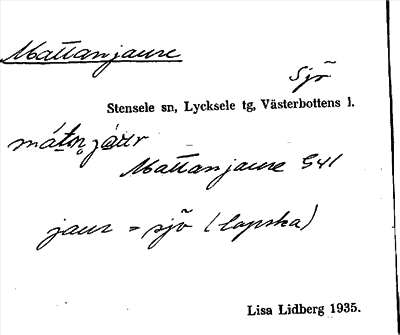 Mattanjaure
Sjö
Stensele sn, Lycksele tg, Västerbottens l.
Mattanjaure G41
jaur = sjö (lapska)
Lisa Lidberg 1935.